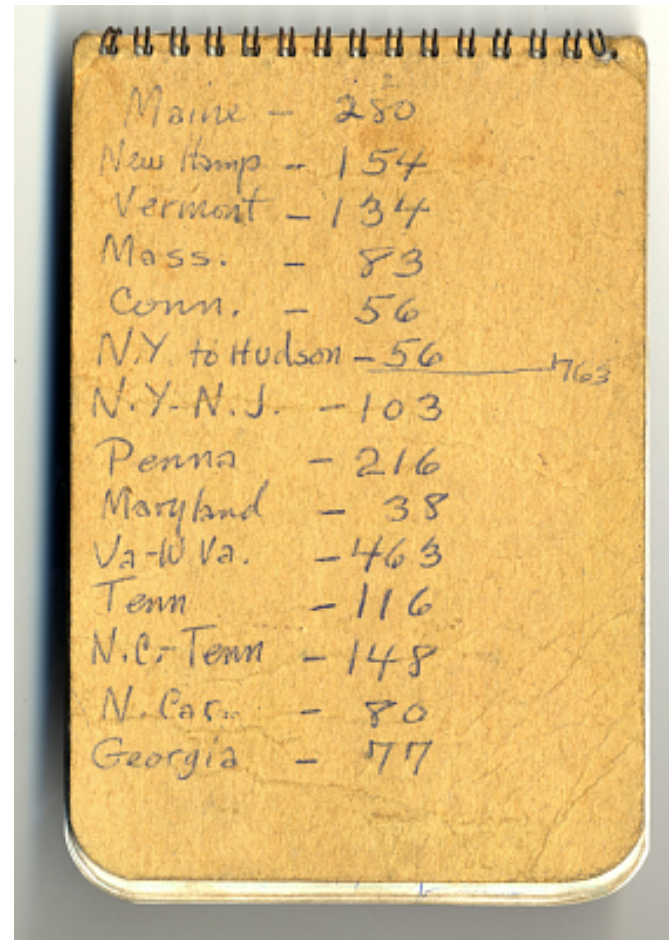 Maine - 280
New Hamp - 154
Vermont - 134
Mass. - 83
Conn. - 56
N.Y. to Hudson - 56 763
N.Y.-N.J. - 103
Penna - 216
Maryland - 38
Va-W Va. - 463
Tenn - 116
N.C.-Tenn - 148
N. Car. - 80
Georgia - 77